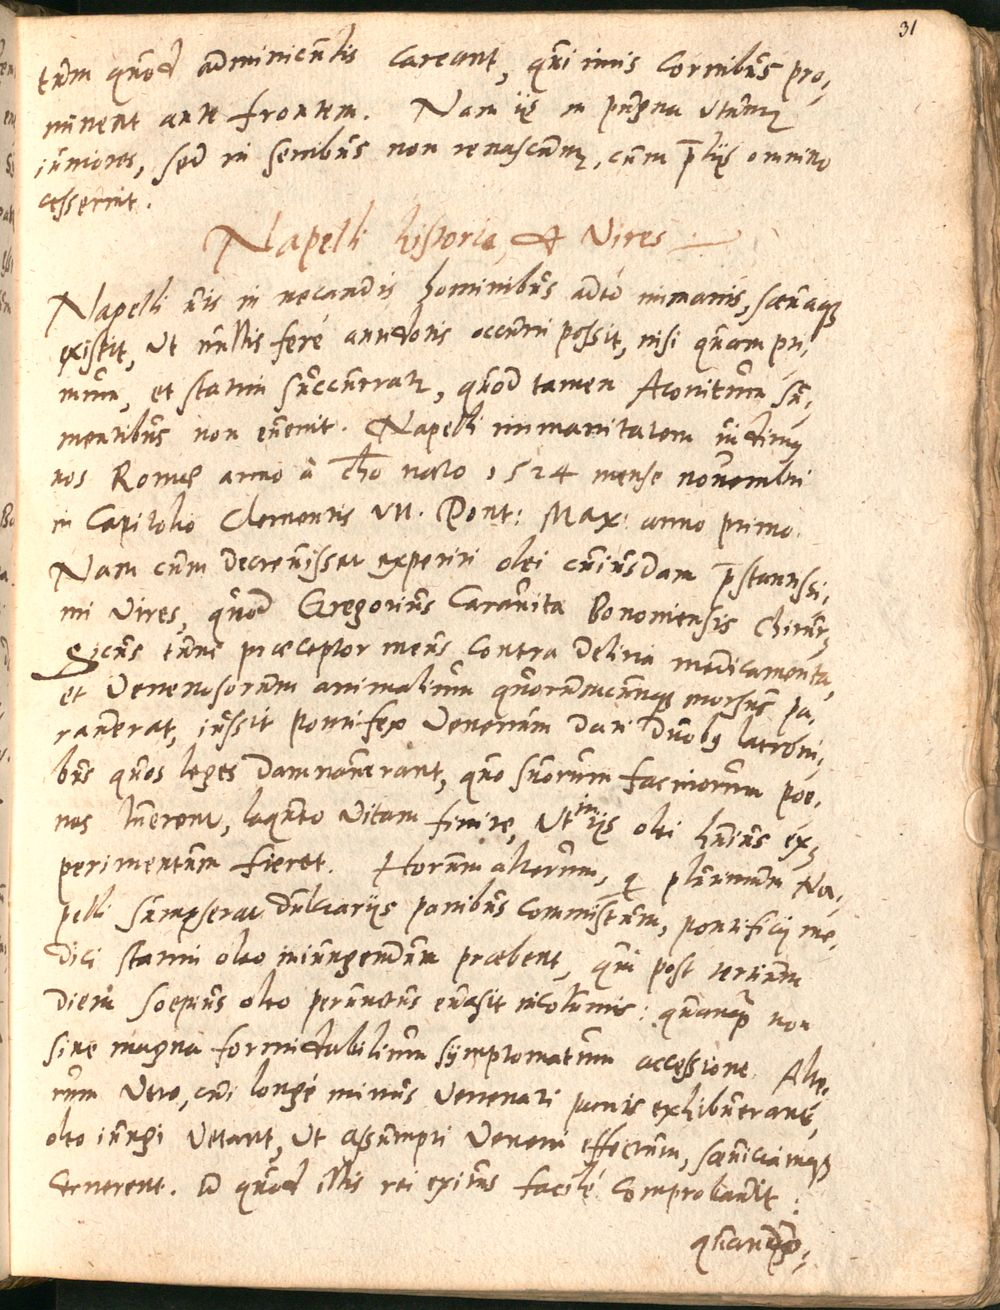 31
tum quod adminiculis careant, qui imis cornibus pro,
minent ante frontem. Nam iis in pugna utuntur
iuniores, sed in senibus non renascuntur, cum p̄liis omnino
cesserint.
Napelli historia, & Vires
Napelli uis in necandis hominibus adeò immanis, sæuaq;
existit, Ut nullis feré antidotis occurri possit, nisi quam pri,
mum, et statim succurratur, quod tamen Aconitum su,
mentibus non euenit. Napelli immanitatem uidimus
nos Romæ anno à Chr̄o nato 1524 mense nouembri
in Capitolio Clementis VII. Pont: Max: anno primo.
Nam cum decreuisset experiri olei cuiusdam p̄stantissi,
mi Vires, quod Gregorius Carauita Bononiensis Chirur,
gicus tunc præceptor meus contra deliria medicamenta,
et Venenosorum animalium quorumcunq; morsus pa,
rauerat, iussit pontifex Venenum dari duobus latroni,
bus quos leges damnauerant, quo suorum facinorum poe,
nas luerent, laqueo Vitam finire, Ut in iis olei huius ex,
perimentum fieret. Horum alterum, q plurimum Na,
pelli sumpserat dulciariis panibus commistum, pontificij me,
dici statim oleo iniungendum præbent, qui post tertium
diem soepius oleo perunctus euasit incolumis: quanq̄ non
sine magna formidabilium symptomatum accessione. Alte,
rum Vero, cui longé minus Venenati panis exhibuerant,
oleo iungi Vetant, Ut assumpti Veneni effectum, sæuiciamq;
cernerent. Id quod illis rei exitus facilé comprobauit:
quandoq,